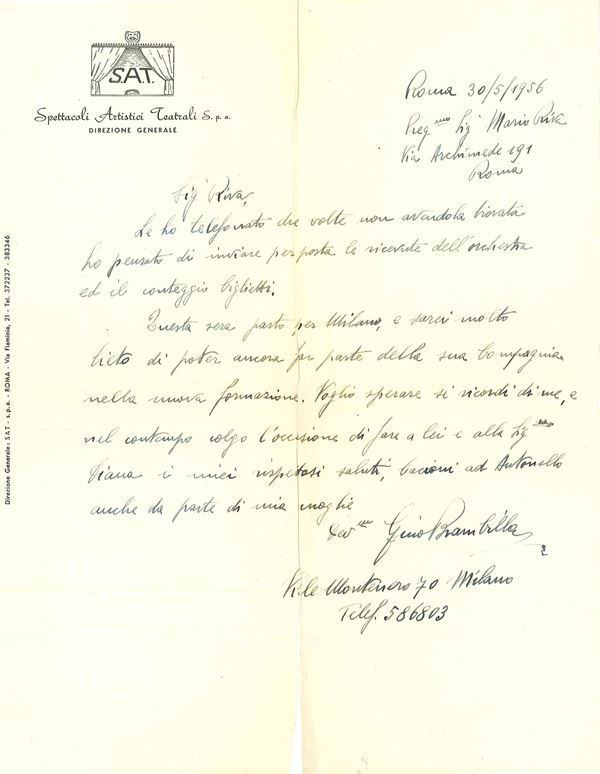 S.A.T.
Spettacoli Artistici Teatrali S. p. a.
DIREZIONE GENERALE
Roma 30/5/1956
Preg.mo Sig. Mario Riva
Via Archimede 191
Roma
Sig. Riva,
Le ho telefonato due volte non avendola trovata
ho pensato di inviare per posta le ricevute dell'orchestra
ed il conteggio biglietti.
Questa sera parto per Milano, e sarei molto
lieto di poter ancora far parte della sua Compagnia
nella nuova formazione. Voglio sperare si ricordi di me, e
nel contempo colgo l'occasione di fare a lei e alla Sig.na
Diana i miei rispettosi saluti, bacioni ad Antonello
anche da parte di mia moglie
Dev.mo Gino Brambilla
V.le Montenero 70 Milano
Telef. 586803
Direzione Generale: SAT - s.p.a. - ROMA - Via Flaminia, 21 - Tel. 372237 - 383346